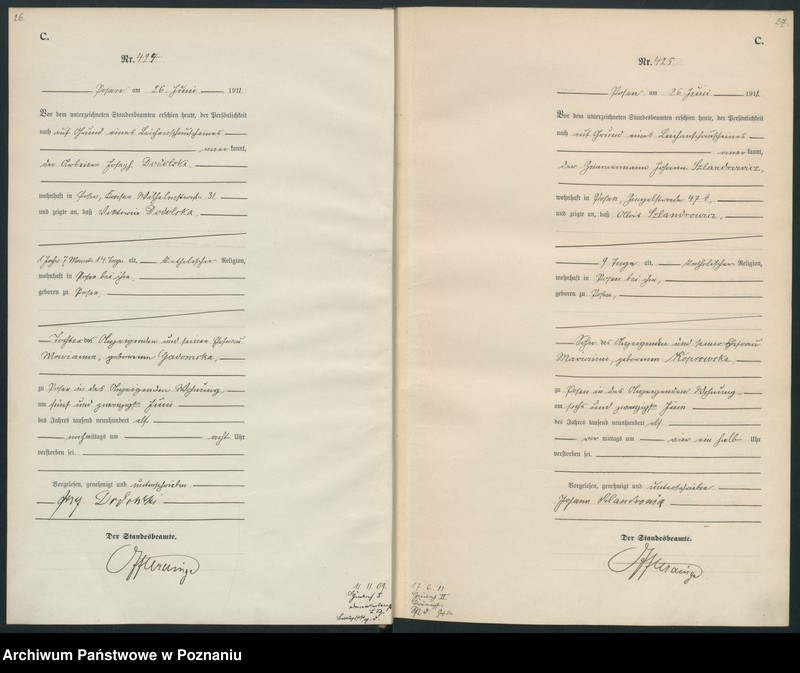 26.
C.
Nr. 424
Posen am 26. Juni 1911
Vor dem unterzeichneten Standesbeamten erschien heute, der Persönlichkeit
nach auf Grund eines Leichenschauscheines
aner kannt,
der Arbeiter Joseph
wohnhaft in Posen, Wilhelmstraße 31.
und zeigte an, daß Viktoria
1 Jahr 7 Monate 14 Tage alt, katholischer Religion,
wohnhaft in Posen bei ihm,
geboren zu Posen,
Tochter des Anzeigenden und seiner Ehefrau
Marianna, geborenen
zu Posen in des Anzeigenden Wohnung
am fünf und zwanzigsten Juni
des Jahres tausend neunhundert elf
nachmittags um acht Uhr
verstorben sei.
Vorgelesen, genehmigt und unterschrieben
Der Standesbeamte.
11. 11. 09.
27.
C.
Nr. 425
Posen am 26. Juni 1911.
Vor dem unterzeichneten Standesbeamten erschien heute, der Persönlichkeit
nach auf Grund eines Leichenschauscheines
aner kannt,
der Zimmermann Johann Szlandrowicz,
wohnhaft in Posen, 47 b,
und zeigte an, daß Alois Szlandrowicz,
9 Tage alt, katholischer Religion,
wohnhaft in Posen bei ihm,
geboren zu Posen,
Sohn des Anzeigenden und seiner Ehefrau
Marianna, geborenen
zu Posen in des Anzeigenden Wohnung
am sechs und zwanzigsten Juni
des Jahres tausend neunhundert elf
vor mittags um vier ein halb Uhr
verstorben sei.
Vorgelesen, genehmigt und unterschrieben
Johann
Der Standesbeamte.
17. 6. 11
Archiwum Państwowe w Poznaniu